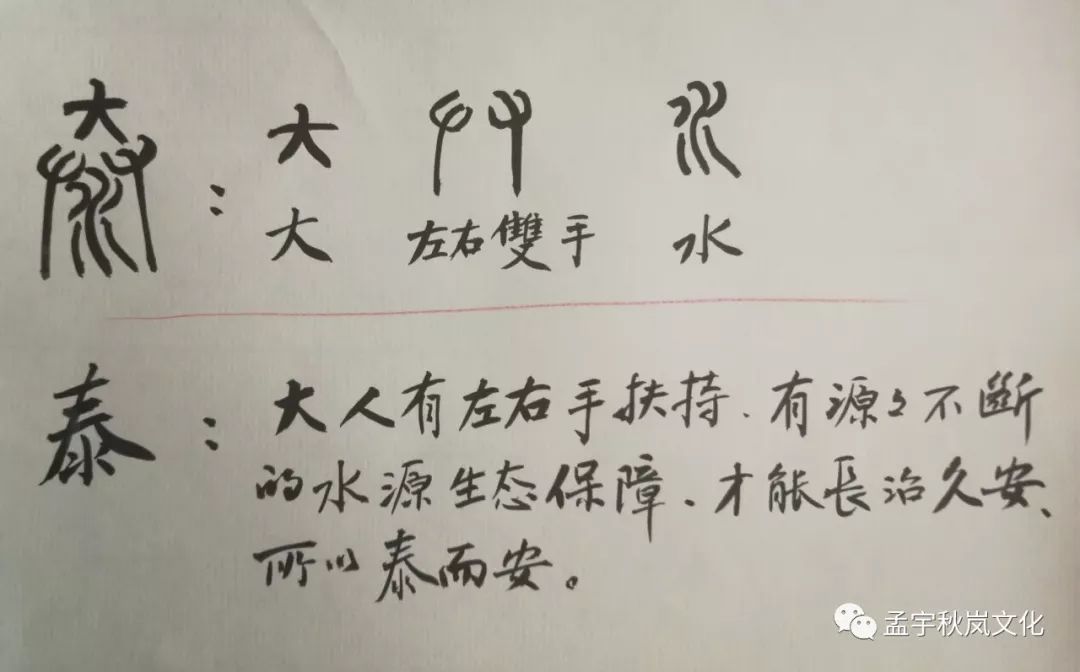 泰：大 艸 水
大 左右雙手 水
泰：大人有左右手扶持、有源々不斷
的水源生态保障、才能長治久安、
所以泰而安。
孟宇秋岚文化